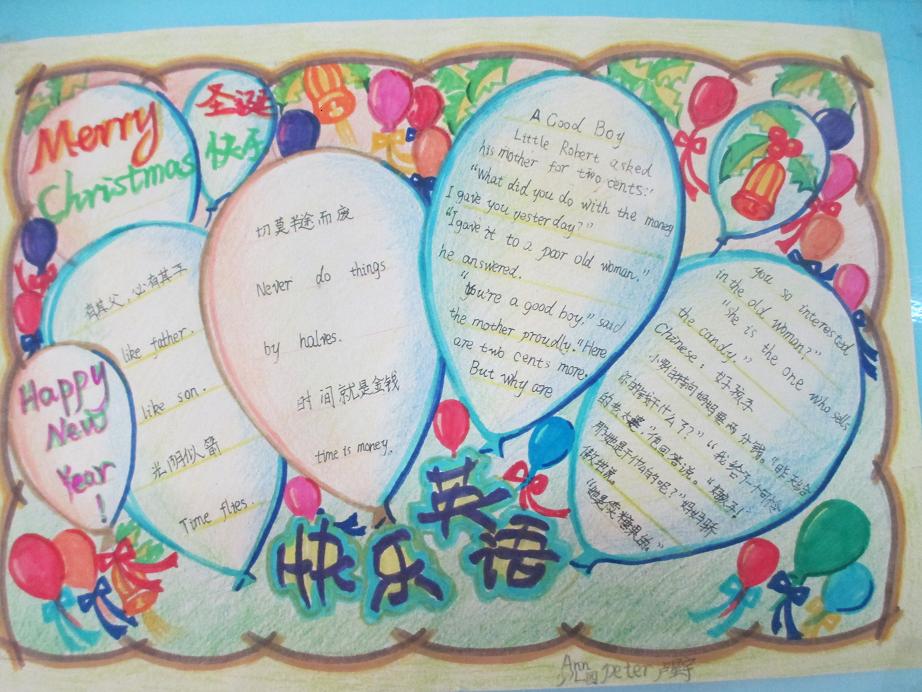 Merry
Christmas
圣诞
快乐
Happy
New
Year
!
有其父，必有其子
like father.
like son.
光阴似箭
Time flies.
切莫半途而废
Never do things
by halves.
时间就是金钱
time is money.
A Good Boy
Little Robert asked
his mother for two cents.
"What did you do with the money
I gave you yesterday?"
"I gave it to a poor old woman,"
he answered.
"You're a good boy," said
the mother proudly. "Here
are two cents more.
But why are
you so interested
in the old woman?"
"She is the one who sells
the candy."
Chinese: 好孩子
小罗伯特向妈妈要两分钱。"昨天给
你的钱干什么了？" "我给了一个可怜
的老太婆，"他回答说。"好孩子！
那她是干什么的呢？"妈妈骄
傲地说。
"她是卖糖果的。"
快乐英语
Ann
peter